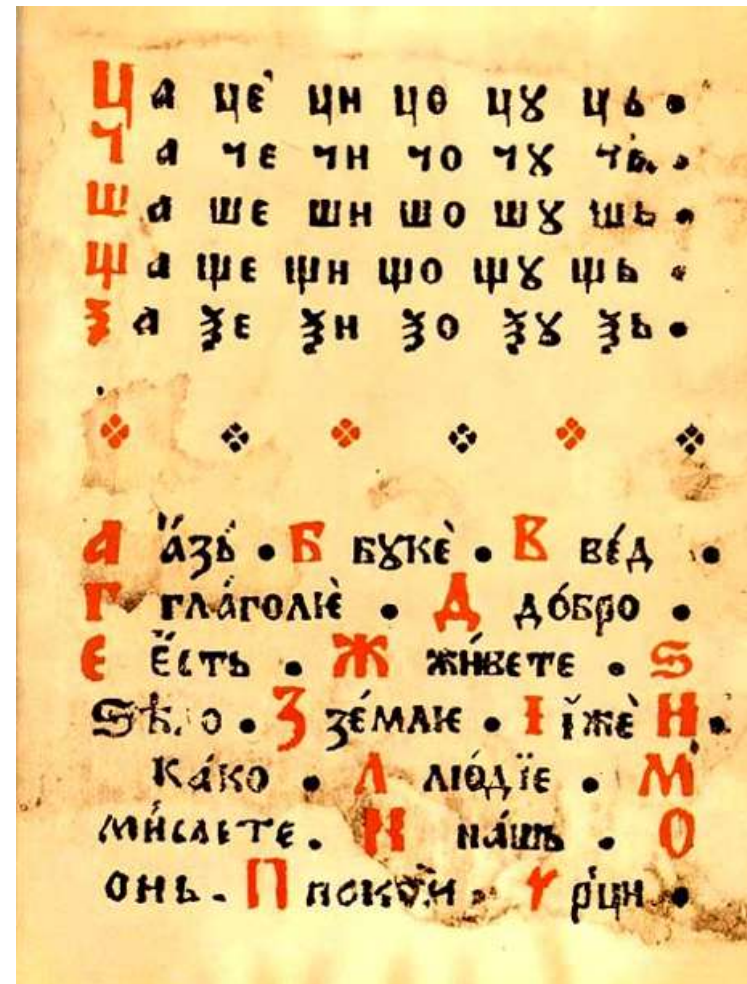 Ц а цѐ ци цо цꙋ ць •
Ч а че чи чо чꙋ чь •
Ш а ше ши шо шꙋ шь •
Щ а ще щи що щꙋ щь •
Ѯ а ѯе ѯи ѯо ѯꙋ ѯь •
А а҆́зь • Б бꙋкѐ • В ве́д •
Г гла́голѥ̀ • Д до́бро •
Е е҆́сть • Ж жи́вете • Ѕ
Ѕѣло • З зе́млѥ • І ї҆жѐ И •
ка́ко • Л лю́дїе • М
ми́слете • Н на́шь • О
онь • П поко́и • р'ци •